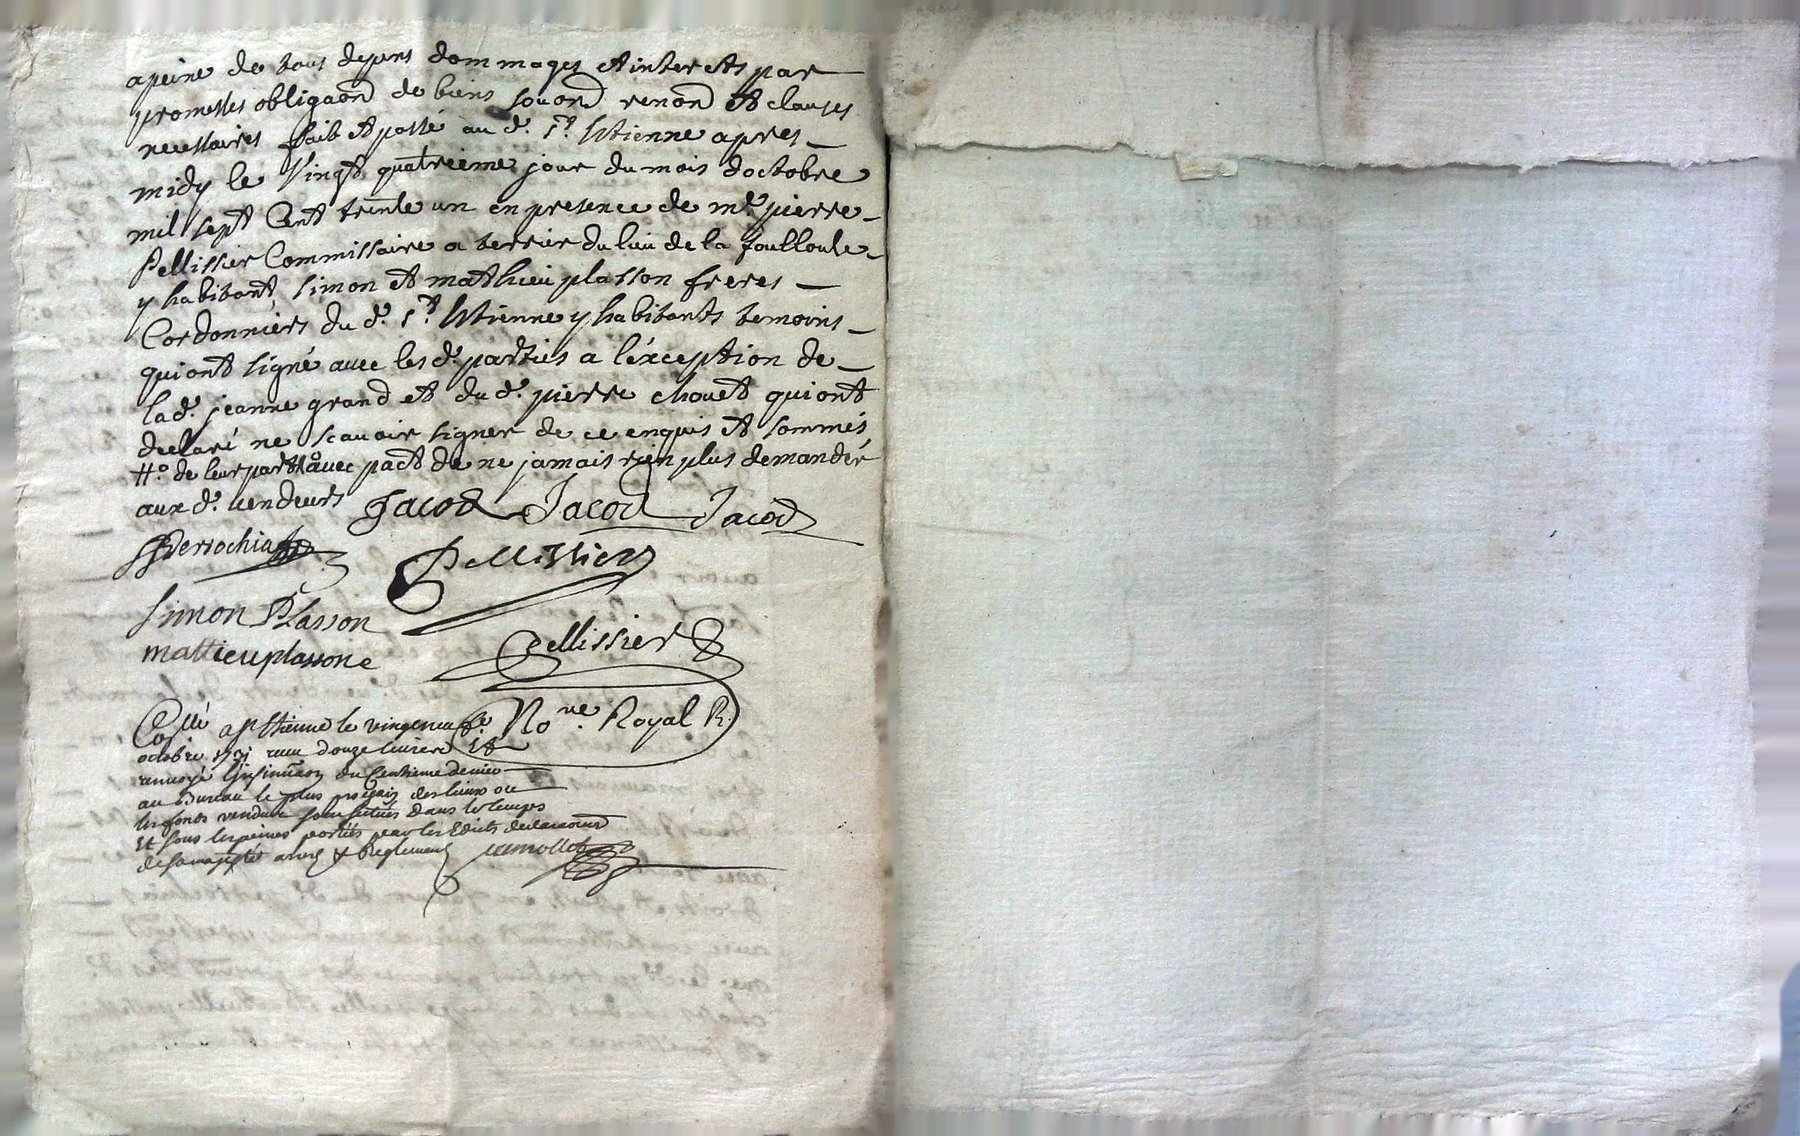 a peine de tous depens dommages et interets par
promesses obligaõn de biens soũon renon et clauses
necessaires fait et passé au d. st. Estienne apres
midy le vingt quatrieme jour du mois doctobre
mil sept cent trente un en presence de me. pierre
Pellissier Commissaire a terrier du lieu de la foullouse
y habitant, simon et mathieu plasson freres
Cordonniers du d. st. Estienne y habitants temoins
qui ont signé avec les d. parties a léxception de
la d. jeanne grand et du d. pierre chouet qui ont
declaré ne scavoir signer de ce enquis et sommés
de leur part avec pact de ne jamais rien plus demander
aux d. vendeurs Jacod Jacod Jacod
Perrochia
Pellissier
simon Plasson
mattieu plassone
Pellissier
No.re Royal R.
Collé a st Etienne le vingt neuf
octobre 1731 receu douze livres
renvoyé l'insinuaõn du Centieme denier
au Bureau le plus prochain des lieux ou
les fonds vendus sont situés dans le temps
Et sous les peines portées par les Edits declarations
de sa majesté arrets & Reglements